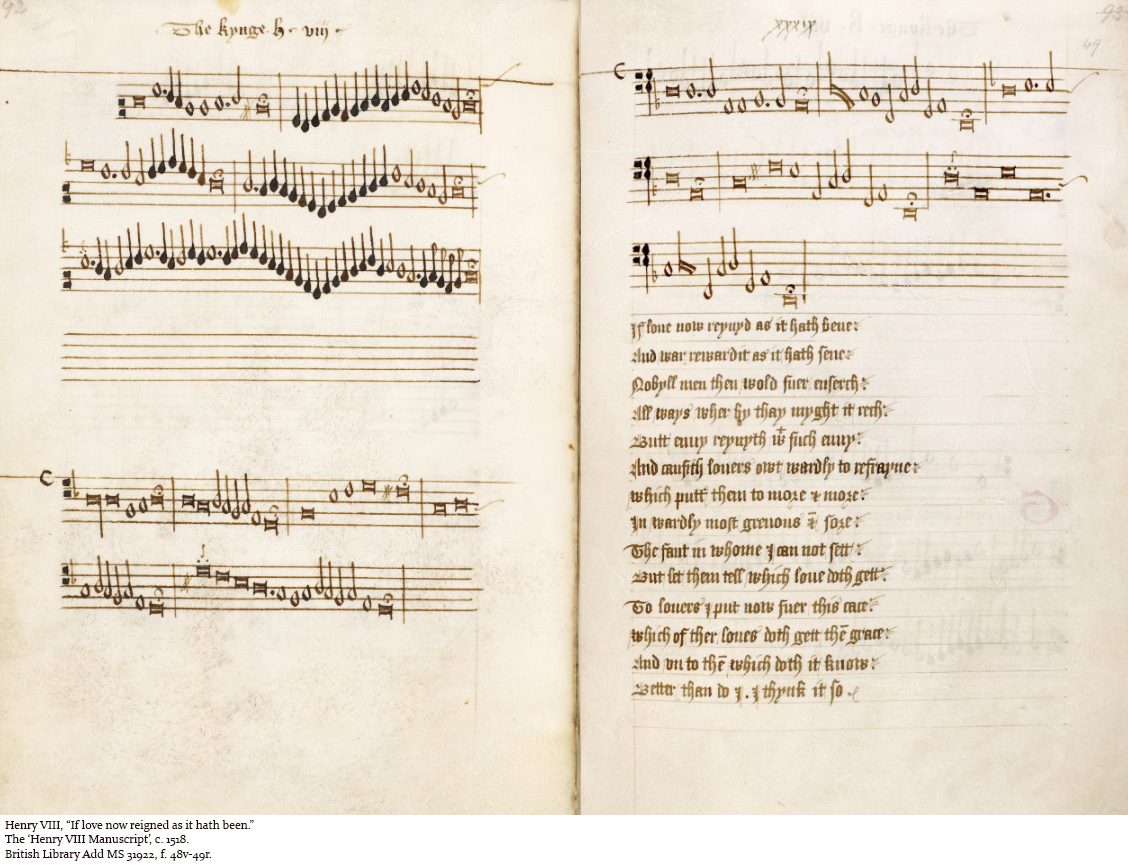 92
The kynge · h · viij ·
xlxxx
93
49
If loue now reynyd as it hath bene:
And war rewardit as it hath sene:
Nobyll men then wold suer enserch:
All ways wher by thay myght it rech:
Butt enuy reynyth wt such enuy:
And causith louers owtwardly to refrayne:
which putt them to more & more:
In wardly most greuous & sore:
The faut in whome I can not sett:
But let them tell which loue doth gett:
To louers I put now suer this cace:
which of ther loues doth gett thē grace:
And vn to thē which doth it know:
Better than do I . I thynk it so
Henry VIII, “If love now reigned as it hath been.”
The ‘Henry VIII Manuscript’, c. 1518.
British Library Add MS 31922, f. 48v-49r.